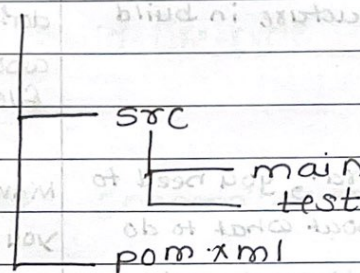 src
main
test
pom.xml